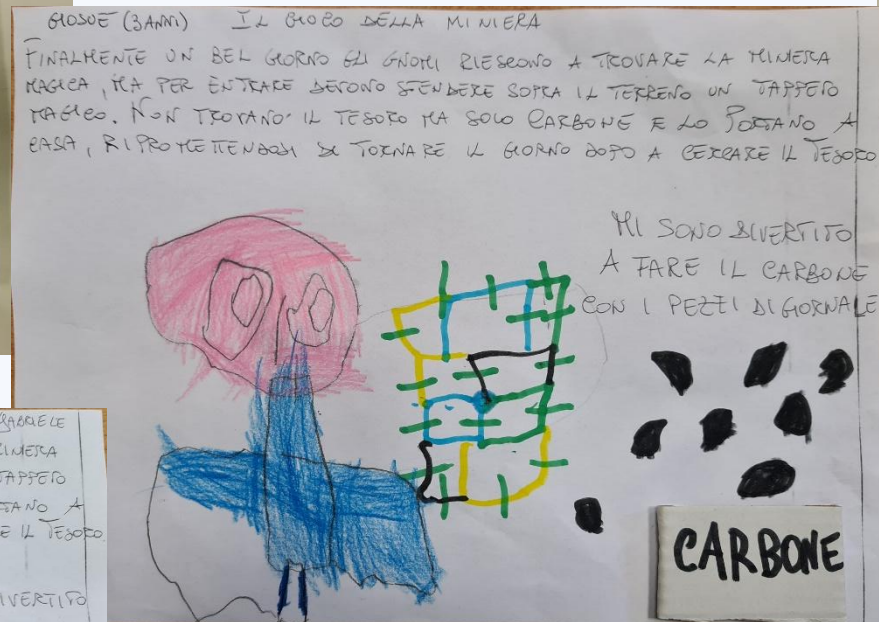 GIOSUÈ (3 ANNI) IL GIOCO DELLA MINIERA
FINALMENTE UN BEL GIORNO GLI GNOMI RIESCONO A TROVARE LA MINIERA
MAGICA, MA PER ENTRARE DEVONO STENDERE SOPRA IL TERRENO UN TAPPETO
MAGICO. NON TROVANO IL TESORO MA SOLO CARBONE E LO PORTANO A
CASA, RIPROMETTENDOSI DI TORNARE IL GIORNO DOPO A CERCARE IL TESORO
MI SONO DIVERTITO
A FARE IL CARBONE
CON I PEZZI DI GIORNALE
CARBONE
GABRIELE
MINIERA
TAPPETO
PORTANO A
E IL TESORO
DIVERTITO